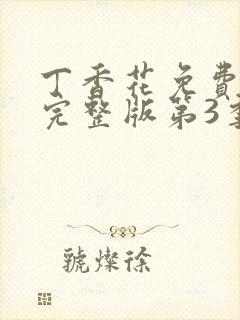 丁香花免费
完整版第3季
號燦徐